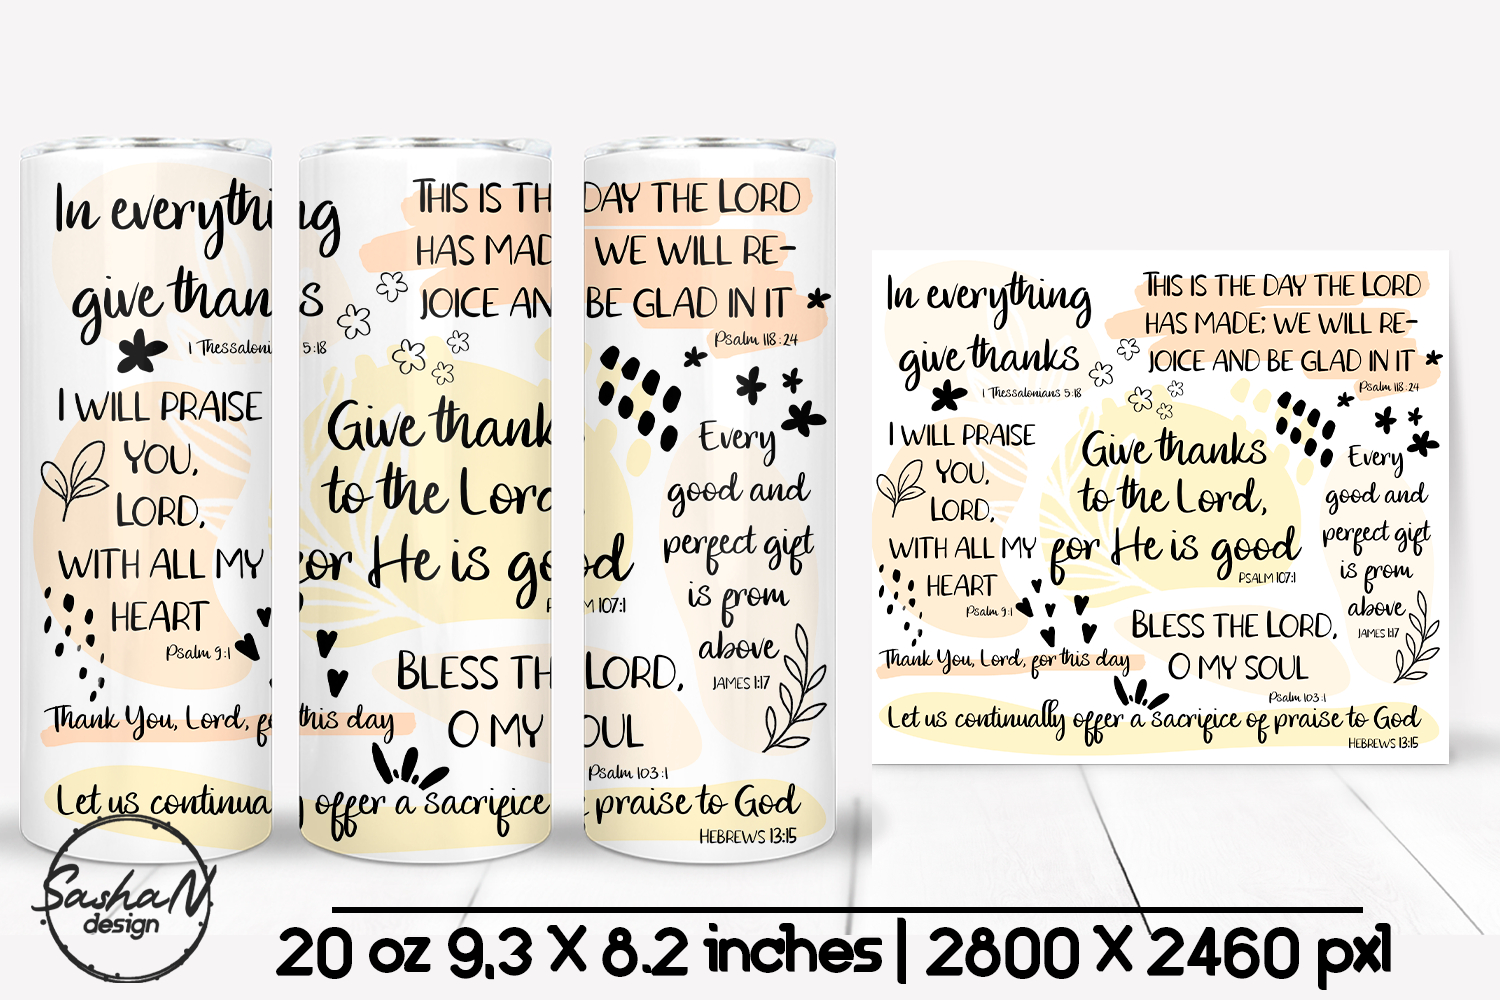 In everything
give thanks
1 Thessaloni 5:18
I WILL PRAISE
YOU,
LORD,
WITH ALL MY
HEART
Psalm 9:1
Thank You, Lord, fo this day
Let us continua offer a sacrifice praise to God
HEBREWS 13:15
THIS IS TH DAY THE LORD
HAS MAD WE WILL RE-
JOICE AN BE GLAD IN IT
Psalm 118:24
Give thank
to the Lord,
for He is good
M 107:1
BLESS TH LORD,
O MY SOUL
Psalm 103:1
Every
good and
perfect gift
is from
above
JAMES 1:17
In everything
give thanks
1 Thessalonians 5:18
I WILL PRAISE
YOU,
LORD,
WITH ALL MY
HEART
Psalm 9:1
Thank You, Lord, for this day
THIS IS THE DAY THE LORD
HAS MADE; WE WILL RE-
JOICE AND BE GLAD IN IT
Psalm 118:24
Give thanks
to the Lord,
for He is good
PSALM 107:1
Every
good and
perfect gift
is from
above
JAMES 1:17
BLESS THE LORD,
O MY SOUL
Psalm 103:1
Let us continually offer a sacrifice of praise to God
HEBREWS 13:15
SashaN
design
20 oz 9,3 X 8.2 inches | 2800 X 2460 pxl